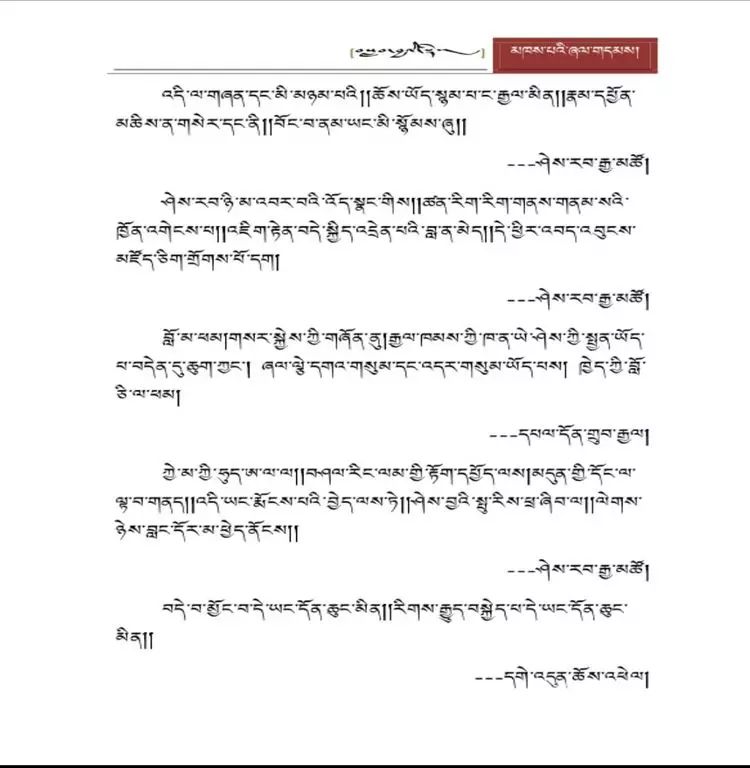 མཁས་པའི་ཞལ་གདམས།
འདི་ལ་གཞན་དང་མི་མཉམ་པའི།།ཆོས་ཡོད་སྙམ་པ་ང་རྒྱལ་མིན།།རྣམ་དཔྱོན་
མཆིས་ན་གསེར་དང་ནི།།བོང་བ་ནམ་ཡང་མི་སྙོམས་ཞུ།།
---ཤེས་རབ་རྒྱ་མཚོ།
ཤེས་རབ་ཉི་མ་འབར་བའི་འོད་སྣང་གིས།།ཚན་རིག་རིག་གནས་གནམ་སའི་
ཁྱོན་འགེངས་པ།།འཇིག་རྟེན་བདེ་སྐྱིད་འདྲེན་པའི་བླ་ན་མེད།།དེ་ཕྱིར་འབད་འབུངས་
མཛོད་ཅིག་གྲོགས་པོ་དག།
---ཤེས་རབ་རྒྱ་མཚོ།
བློ་མ་ཕམ།གསར་སྐྱེས་ཀྱི་གཞོན་ནུ།རྒྱལ་ཁམས་ཀྱི་ཁ་ན་ཡེ་ཤེས་ཀྱི་སྤྱན་ཡོད་
པ་བདེན་དུ་ཆུག་ཀྱང་། ཞལ་ལྕེ་དགའ་གསུམ་དང་འདར་གསུམ་ཡོད་པས། ཁྱེད་ཀྱི་བློ་
ཅི་ལ་ཕམ།
---དཔལ་དོན་གྲུབ་རྒྱལ།
ཀྱེ་མ་ཀྱི་ཧུད་ཨ་ལ་ལ།།བཤལ་རིང་ལམ་གྱི་རྟོག་དཔྱོད་ལས།མདུན་གྱི་དོང་ལ་
ལྟ་བ་གནད།།འདི་ཡང་རྨོངས་པའི་བྱེད་ལས་ཏེ།།ཤེས་བྱའི་སྤུ་རིས་ཕྲ་ཞིབ་ལ།།ལེགས་
ཉེས་བླང་དོར་མ་ཕྱེད་ནོངས།།
---ཤེས་རབ་རྒྱ་མཚོ།
བདེ་བ་མྱོང་བ་དེ་ཡང་དོན་ཆུང་མིན།།རིགས་རྒྱུད་བསྐྱེད་པ་དེ་ཡང་དོན་ཆུང་
མིན།།
---དགེ་འདུན་ཆོས་འཕེལ།